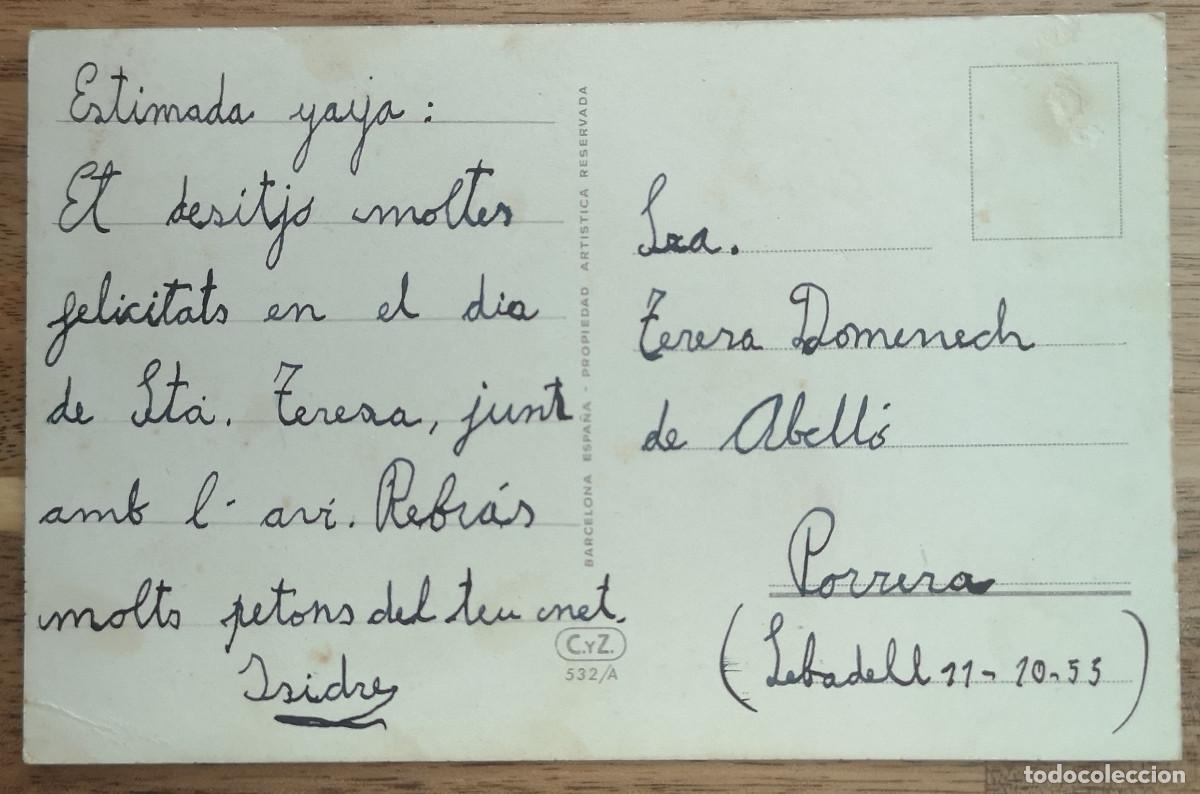 Estimada yaya:
Et desitjo moltes
felicitats en el dia
de Sta. Teresa, junt
amb l'avi. Rebràs
molts petons del teu net.
Isidre
BARCELONA ESPAÑA - PROPIEDAD ARTISTICA RESERVADA
C.YZ.
532/A
Sra.
Teresa Domenech
de Abelló
Porrera
(Sebadell 11-10-55)
todocoleccion